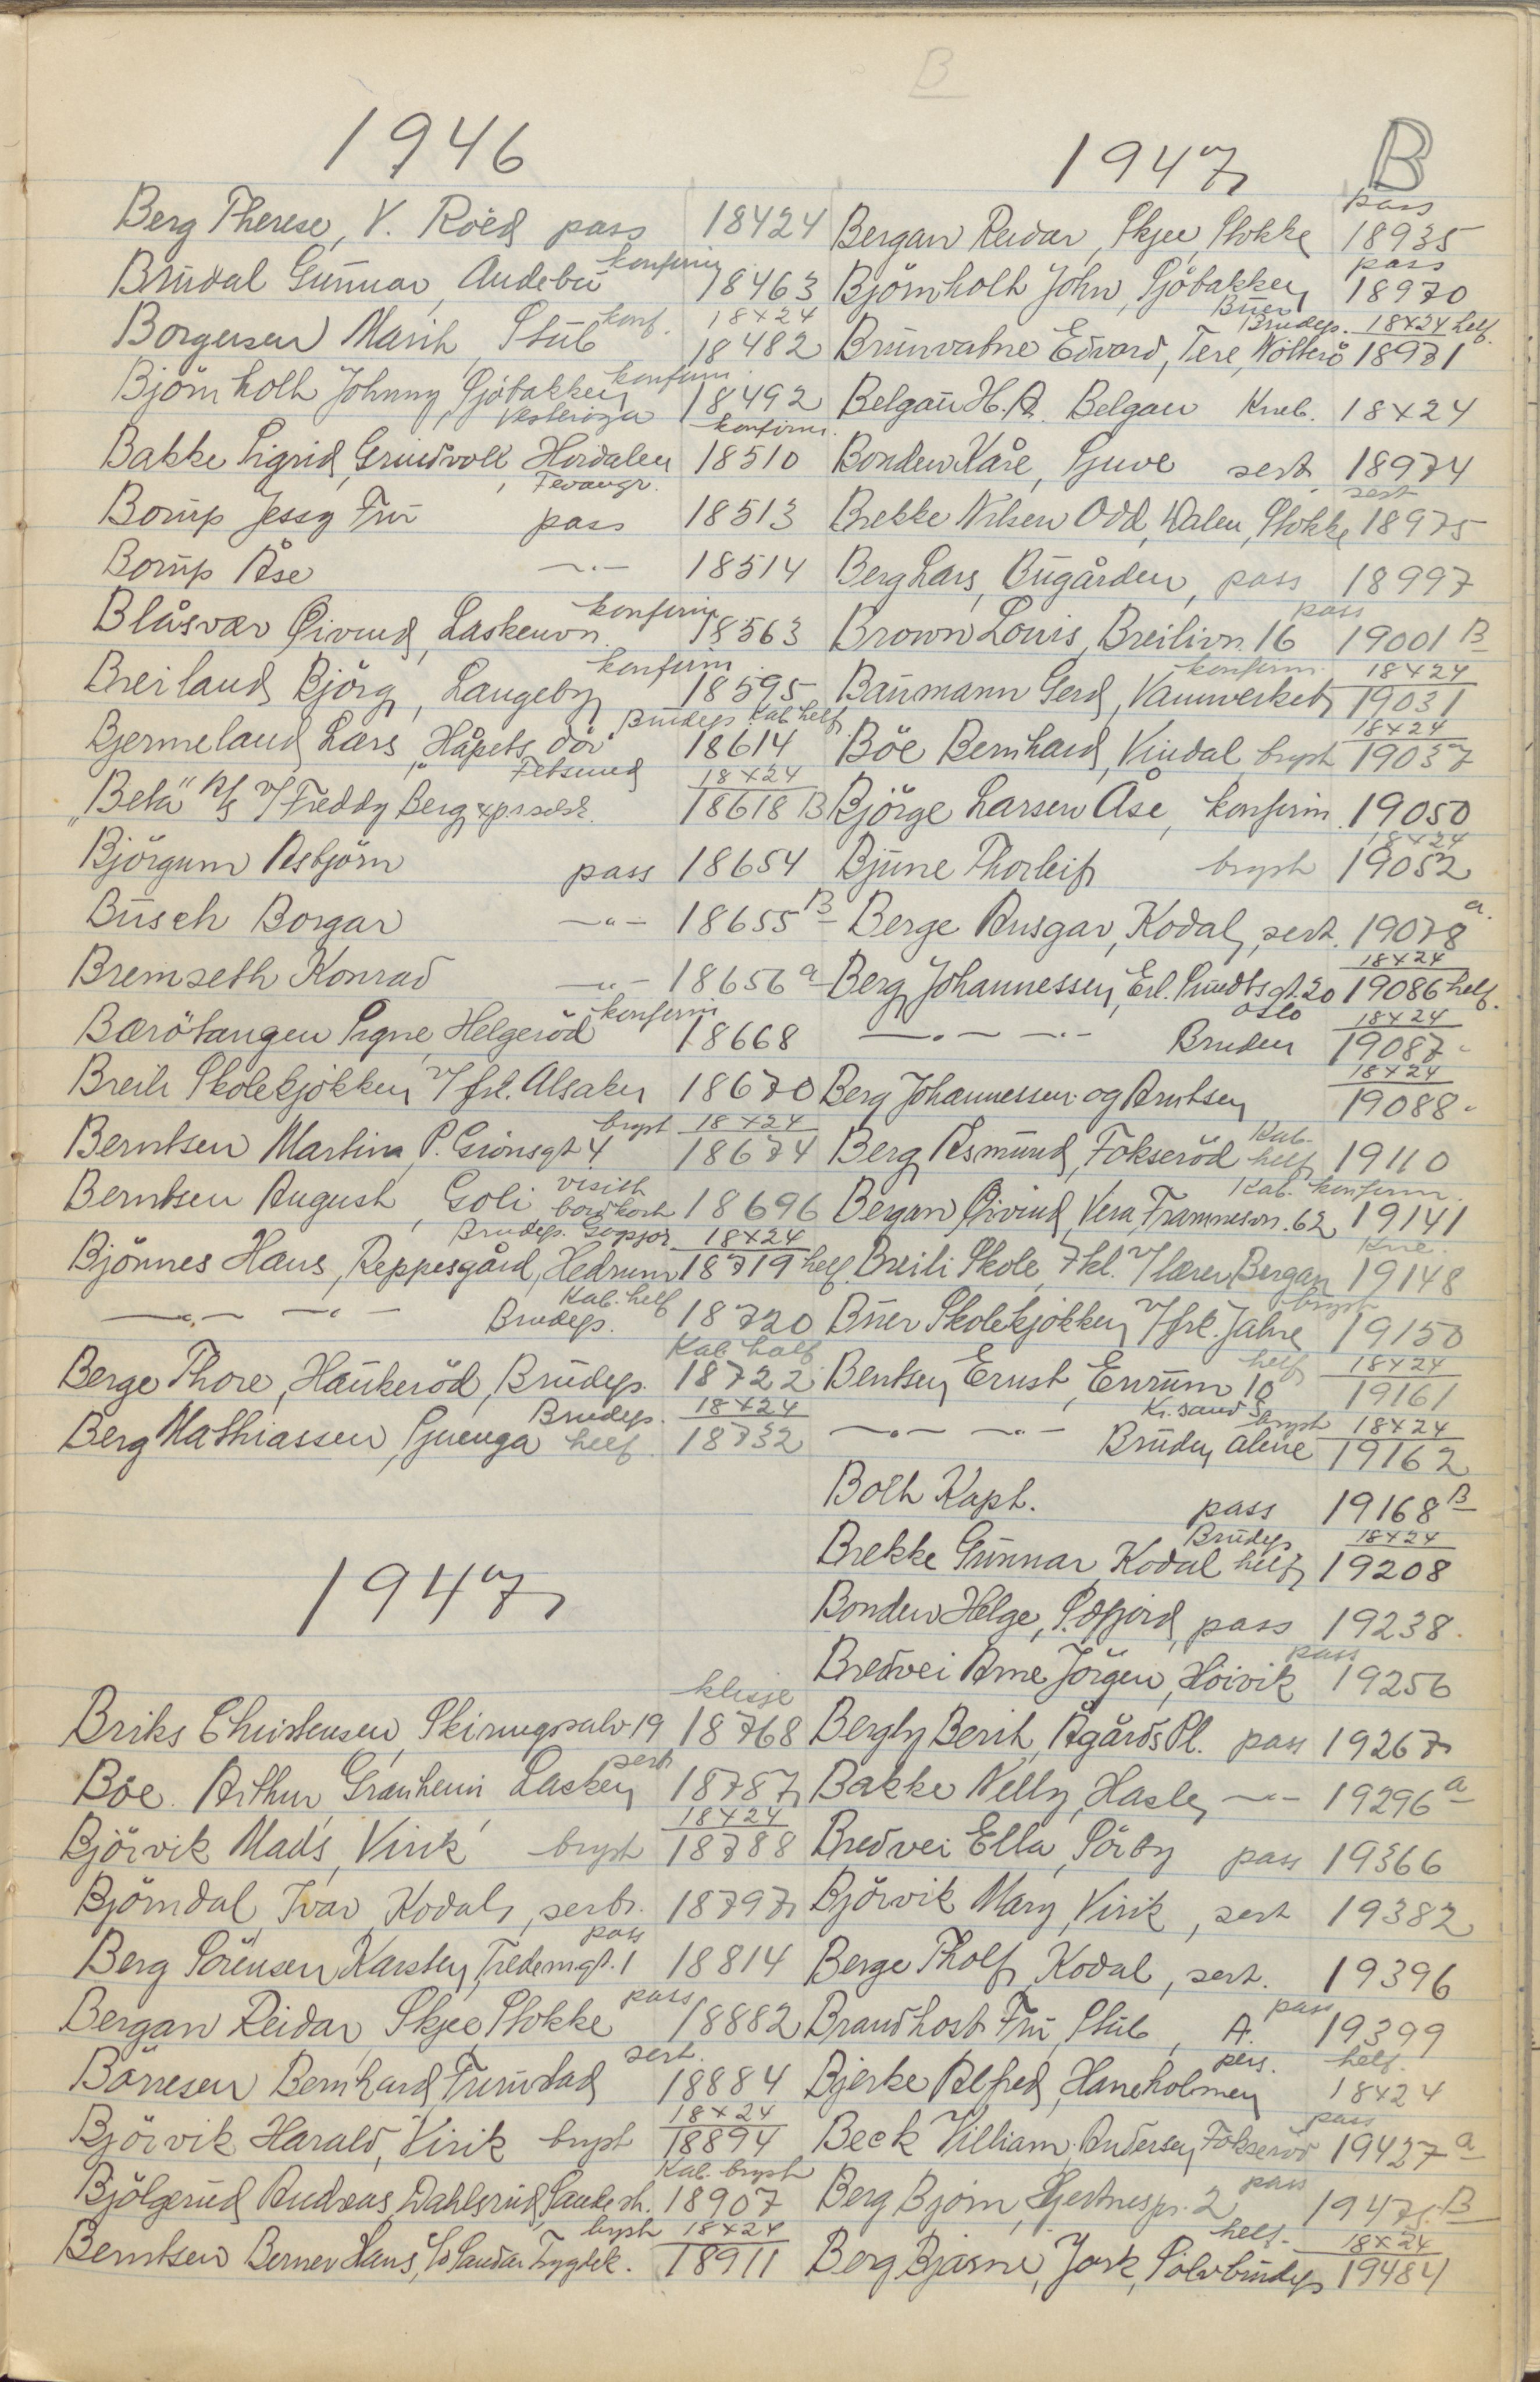 B
1946
Berg Therese, V. Röed pass 18424
Brudal Gunnar, Andebu konfirm 18463
Borgersen Marit, Stub konf. 18x24 18482
Björnholt Johnny, Sjöbakken Vesteröya konfirm. 18492
Bakke Sigrid, Grindvoll, Hordalen konfirm. 18510
Borup Jessy Fru pass 18513
Borup Åse —"— 18514
Blåsvær Öivind, Laskenvn. konfirm 18563
Breiland Björg, Langeby konfirm 18595
Bjermeland Lars, "Håpets dör" Fetsund Brudep. Kab helf 18614
"Beta" A/S v/ Freddy Berg 18x24 18618 B
Björgum Asbjörn pass 18654
Busch Borgar —"— 18655 B
Bremseth Konrad —"— 18656 a
Bærötangen Signe, Helgeröd konfirm 18668
Breili Skolekjökken v/ frk. Alsaker 18670
Berntsen Martin, P. Grönsgt 4 bryst 18x24 18674
Berntsen August, Goli visitt 18696
Björnnes Hans, Reppesgård, Hedrum Brudep. 18x24 18719 helf.
—"— —"— Brudep. Kab. helf 18720
Berge Thore, Haukeröd, Brudep. Kab half 18722
Berg Mathiassen, Gjuenga Brudep. helf 18x24 18732
1947
Briks Christensen, Skiringssalv 19 klisje 18768
Böe Arthur, Granheim Lasken sert 18787
Björvik Mads, Virik bryst 18x24 18788
Björndal Ivar, Kodal, sert. 18797
Berg Sörensen Karsten, Tredemgt. 1 pass 18814
Bergan Reidar, Skjee Stokke pass 18882
Börresen Bernhard, Furustad sert. 18884
Björvik Harald, Virik bryst 18x24 18894
Bjölgerud Andreas, Dahlsrud, Kab. bryst 18907
Berntsen Berner Hans, bryst 18x24 18911
1947 B
Bergan Reidar, Skjee, Stokke pass 18935
Björnholt John, Sjöbakken pass 18970
Brunvatne Edvard, Brudep. 18x24 helf. 18971
Belgau H. A. Belgau Kneb. 18x24
Bonden Kåre, Gjuve sert 18974
Brekke Nilsen Odd, Dalen, Stokke sert 18975
Berg Lars, Bugården, pass 18997
Brown Louis, Breilivn. 16 pass 19001 B
Baumann Gerd, Vannverket konfirm. 18x24 19031
Böe Bernhard, Vindal bryst 18x24 19037
Björge Larsen Åse, konfirm. 19050
Bjune Thorleif bryst 18x24 19052
Berge Ansgar, Kodal, sert. 19078 a.
Berg Johannessen, Erl. Oslo 18x24 19086 helf.
—"— —"— Bruden 18x24 19087 "
Berg Johannessen og Arntsen 18x24 19088 "
Berg Asmund, Fokseröd Kab. helf 19110
Bergan Öivind, Vera, Framnesvn. 62 Kab. konfirm. 19141
Breili Skole, 7 kl. v/ lærer Bergan Kne. 19148
Buer Skolekjökken v/ frk. Jahre bryst 19150
Bentsen Ernst, Enrum 10 Kr. sand S helf 18x24 19161
—"— —"— Bruden alene bryst 18x24 19162
Both Kapt. pass 19168 B
Brekke Gunnar, Kodal Brudep. helf 18x24 19208
Bonden Helge, S.d.fjord, pass 19238
Bredvei Arne Jörgen, Höivik pass 19256
Bergby Berit, Ågårds Pl. pass 19267
Bakke Nelly, Hasle, —"— 19296 a
Bredvei Ella, Sörby pass 19366
Björvik Mary, Virik, sert 19382
Berge Tholf, Kodal, sert. 19396
Brandhost Fru, Stub, A. pass 19399
Bjerke Alfred, Haneholmen pers. helf. 18x24
Beck William Andersen, Fokseröd pass 19427 a
Berg Björn, Hjertnespr. 2 pass 19475 B
Berg Bjarne, York, Sölvbrudep helf. 18x24 19484